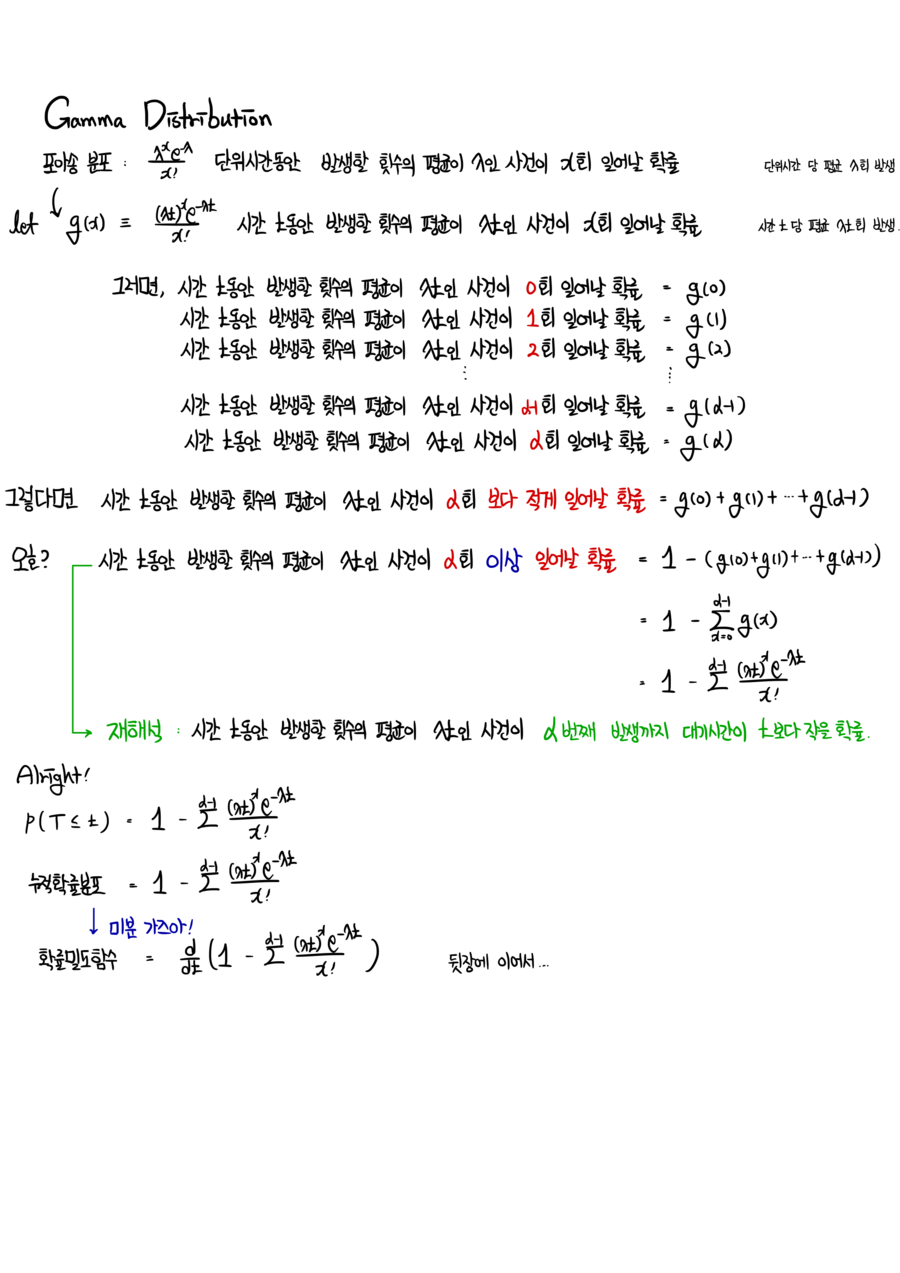 Gamma Distribution
포아송 분포 : λˣe^-λ / x! 단위시간동안 발생할 횟수의 평균이 λ인 사건이 x회 일어날 확률 단위시간 당 평균 λ회 발생
let g(x) ≡ (λt)ˣe^-λt / x! 시간 t동안 발생할 횟수의 평균이 λt인 사건이 x회 일어날 확률 시간 t 당 평균 λt회 발생.
그러면, 시간 t동안 발생할 횟수의 평균이 λt인 사건이 0회 일어날 확률 = g(0)
시간 t동안 발생할 횟수의 평균이 λt인 사건이 1회 일어날 확률 = g(1)
시간 t동안 발생할 횟수의 평균이 λt인 사건이 2회 일어날 확률 = g(2)
⋮ ⋮
시간 t동안 발생할 횟수의 평균이 λt인 사건이 α-1회 일어날 확률 = g(α-1)
시간 t동안 발생할 횟수의 평균이 λt인 사건이 α회 일어날 확률 = g(α)
그렇다면 시간 t동안 발생할 횟수의 평균이 λt인 사건이 α회 보다 적게 일어날 확률 = g(0)+g(1)+⋯+g(α-1)
오호? 시간 t동안 발생할 횟수의 평균이 λt인 사건이 α회 이상 일어날 확률 = 1 - (g(0)+g(1)+⋯+g(α-1))
= 1 - Σ_{x=0}^{α-1} g(x)
= 1 - Σ^{α-1} (λt)ˣe^-λt / x!
재해석 : 시간 t동안 발생할 횟수의 평균이 λt인 사건이 α번째 발생까지 대기시간이 t보다 작을 확률.
Alright!
P(T ≤ t) = 1 - Σ^{α-1} (λt)ˣe^-λt / x!
누적확률분포 = 1 - Σ^{α-1} (λt)ˣe^-λt / x!
↓ 미분 가즈아!
확률밀도함수 = d/dt (1 - Σ^{α-1} (λt)ˣe^-λt / x!) 뒷장에 이어서...